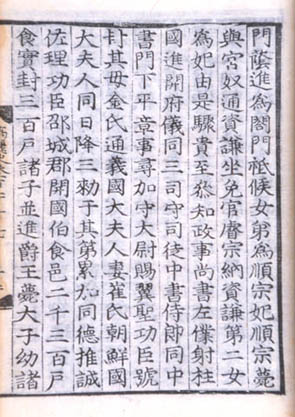 門蔭進爲閤門祗候女弟爲順宗妃順宗薨
與宮奴通資謙坐免官睿宗納資謙第二女
爲妃由是驟貴至叅知政事尚書左僕射柱
國進開府儀同三司守司徒中書侍郎同中
書門下平章事尋加守大尉賜翼聖功臣號
封其母金氏通義國大夫人妻崔氏朝鮮國
大夫人同日降三勑于其第累加同德推誠
佐理功臣邵城郡開國伯食邑二千三百戶
食實封三百戶諸子並進爵王薨大子幼諸